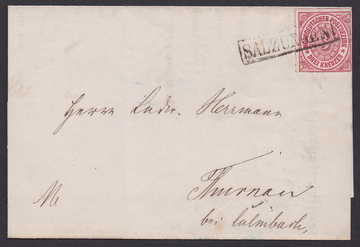 SALZUNGEN
NORDDEUTSCHER POSTBEZIRK
DREI KREUZER
Herrn Herrmann
Thurnau
bei Culmbach,